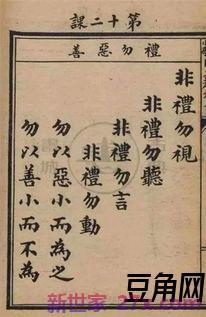 課二十第
善惡勿禮
非禮勿視
非禮勿聽
非禮勿言
非禮勿動
勿以惡小而為之
勿以善小而不為
豆角网